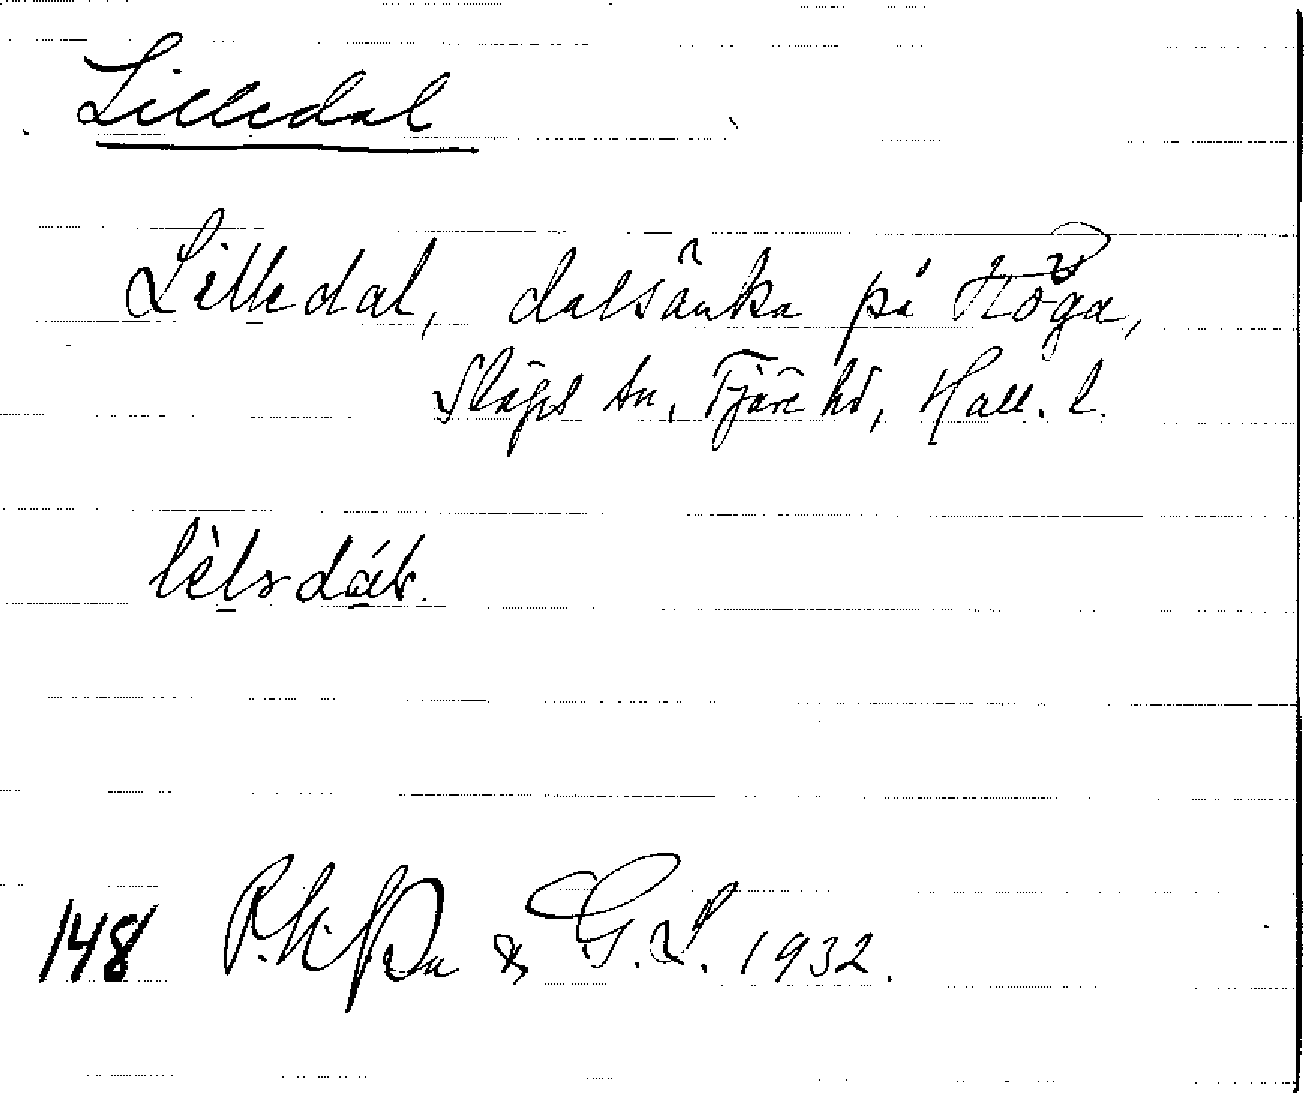 Lilledal
Lilledal, dalsänka på Höga,
Släps sn, Fjäre hd, Hall. l.
148 & G. L. 1932.